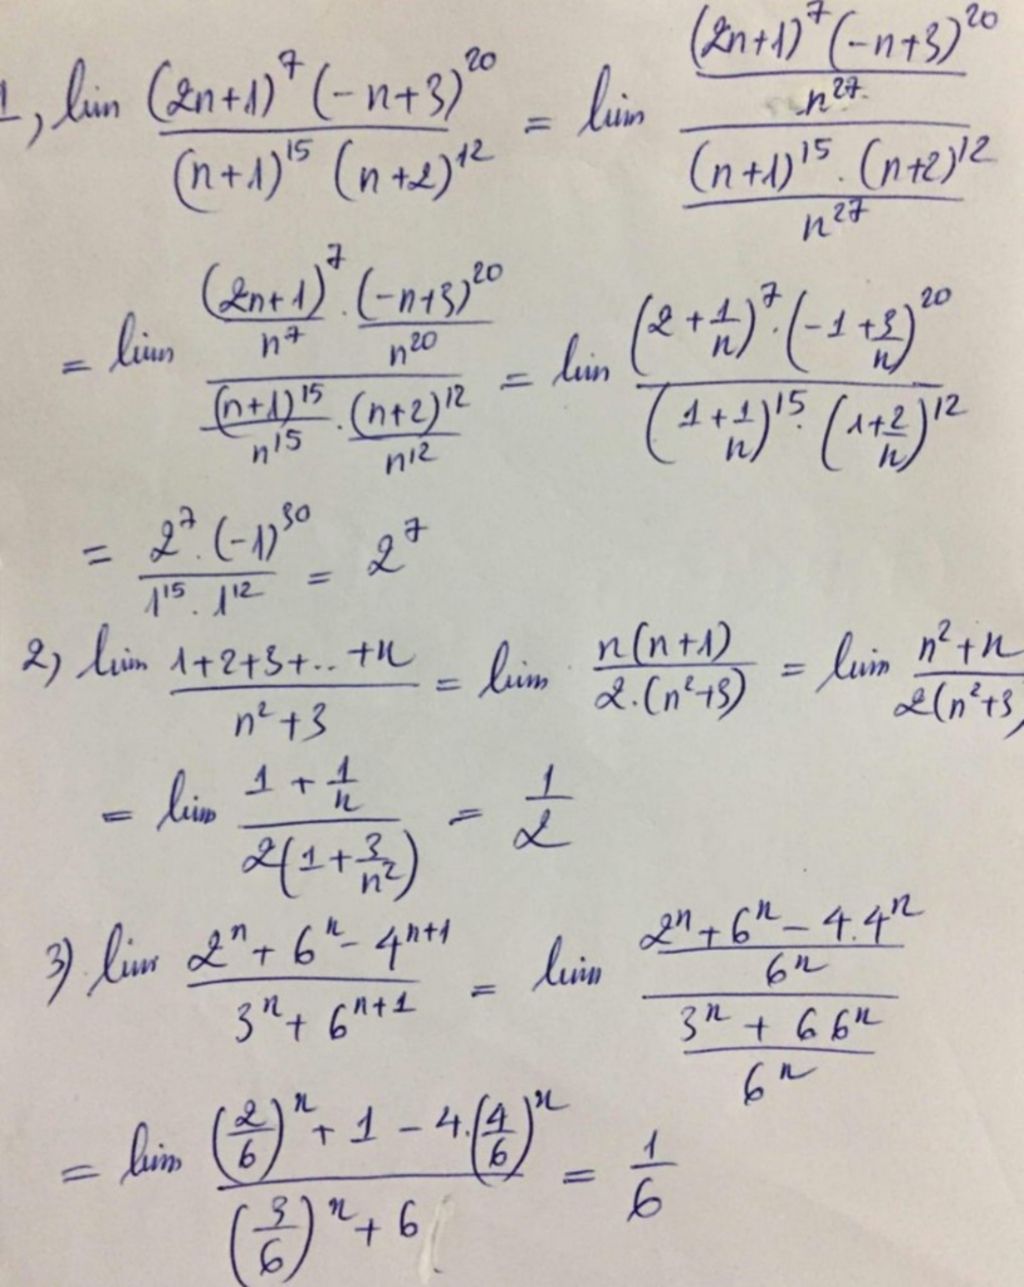 1, lim (2n+1)^7 (-n+3)^20 / (n+1)^15 (n+2)^12 = lim ((2n+1)^7 (-n+3)^20 / n^27) / ((n+1)^15 . (n+2)^12 / n^27)
= lim ((2n+1)^7 / n^7 . (-n+3)^20 / n^20) / ((n+1)^15 / n^15 . (n+2)^12 / n^12) = lim (2 + 1/n)^7 . (-1 + 3/n)^20 / (1 + 1/n)^15 . (1 + 2/n)^12
= 2^7 . (-1)^30 / 1^15 . 1^12 = 2^7
2, lim 1+2+3+..+n / n^2+3 = lim n(n+1) / 2.(n^2+3) = lim n^2+n / 2(n^2+3)
= lim 1 + 1/n / 2(1 + 3/n^2) = 1/2
3) lim 2^n + 6^n - 4^n+1 / 3^n + 6^n+1 = lim (2^n + 6^n - 4.4^n / 6^n) / (3^n + 6 6^n / 6^n)
= lim (2/6)^n + 1 - 4.(4/6)^n / (3/6)^n + 6 = 1/6